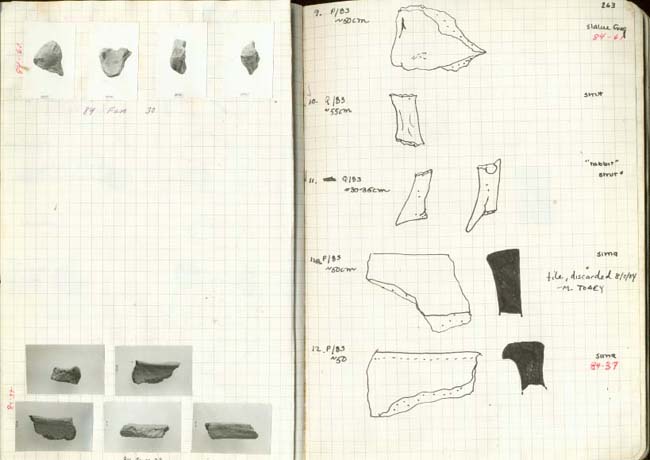 84-61
84 Fan 30
263
9. P/B3
~50cm
statue frag
84-61
10. Q/B3
~55cm
strut
11. Q/B3
~30-35cm
"rabbit"
strut
P/B3
~50cm
sima
tile, discarded
-M. TOBEY
12. P/B3
~50
sima
84-37